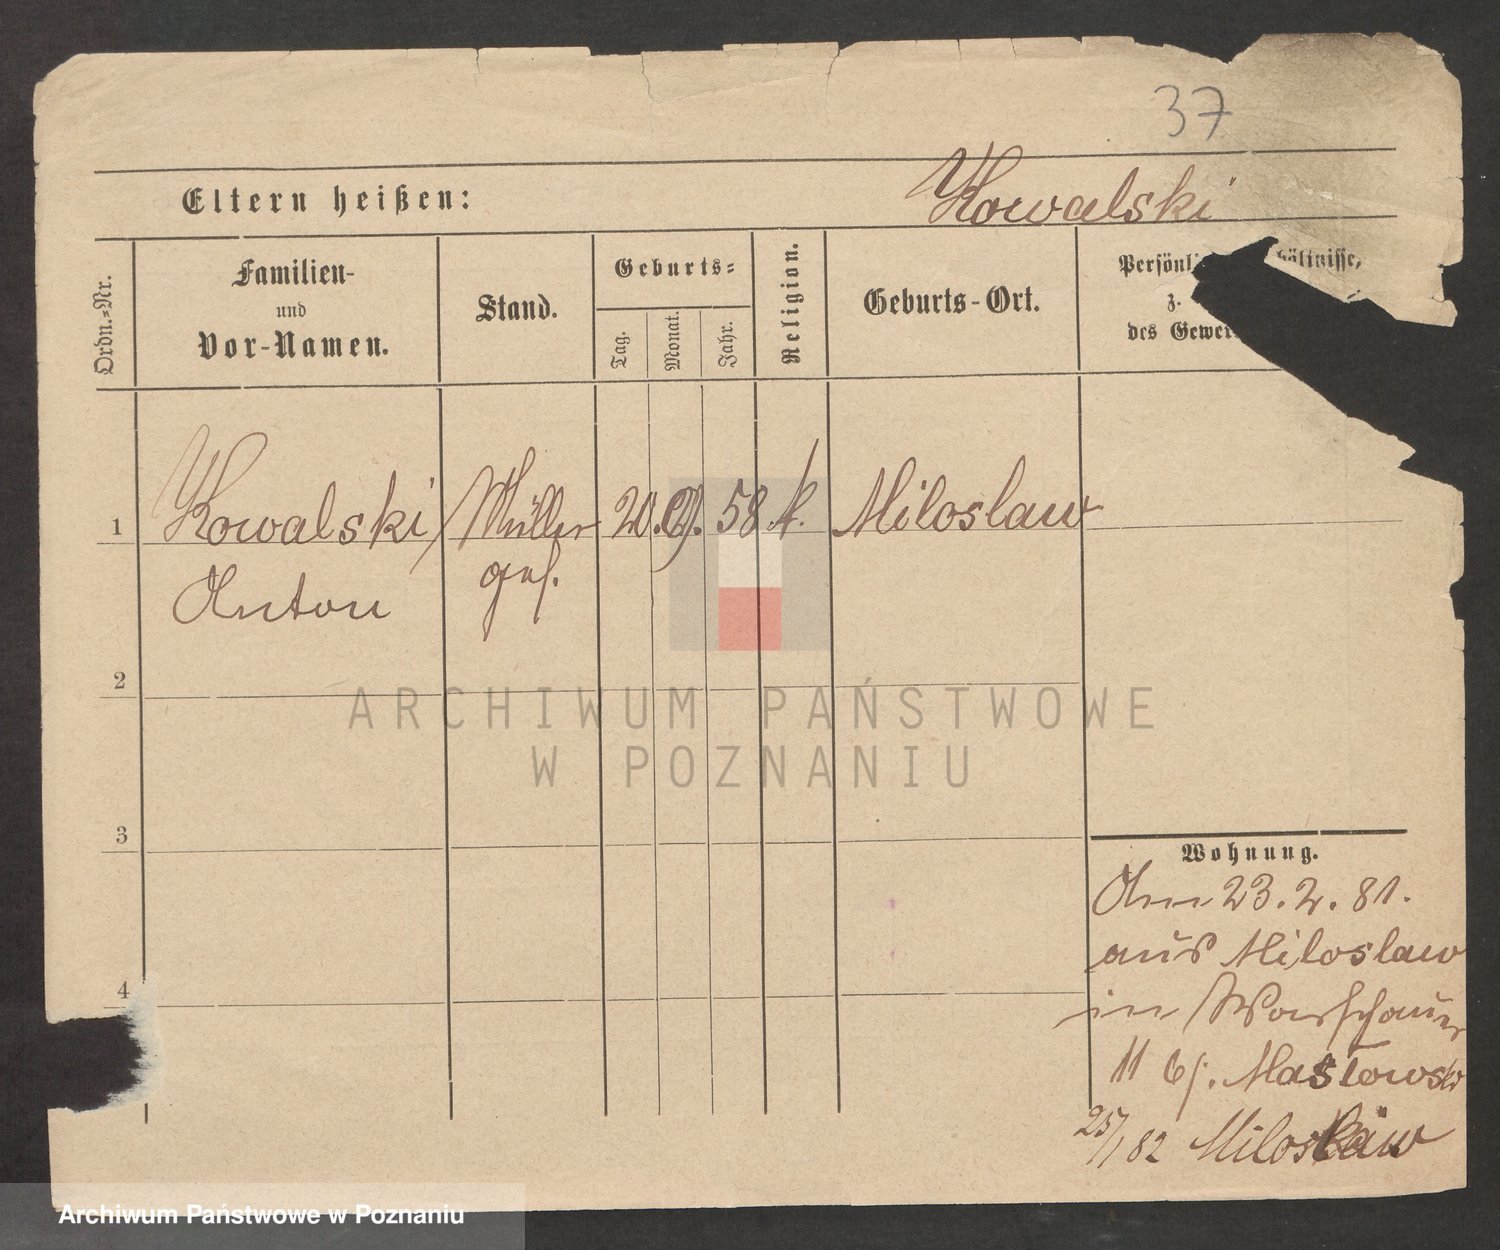 37
Eltern heißen:
Kowalski
Ordn.-Nr.
Familien-
und
Vor-Namen.
Stand.
Geburts-
Tag.
Monat.
Jahr.
Religion.
Geburts-Ort.
Persönl hältnisse,
z.
des Gewer
1 Kowalski Müller 20. 58 k. Miloslaw
Anton ges.
2
3
4
Wohnung.
Am 23.2.81.
aus Miloslaw
in Warschauer
11 bj. Maslowski
25/1 82 Miloslaw
ARCHIWUM PAŃSTWOWE
W POZNANIU
Archiwum Państwowe w Poznaniu